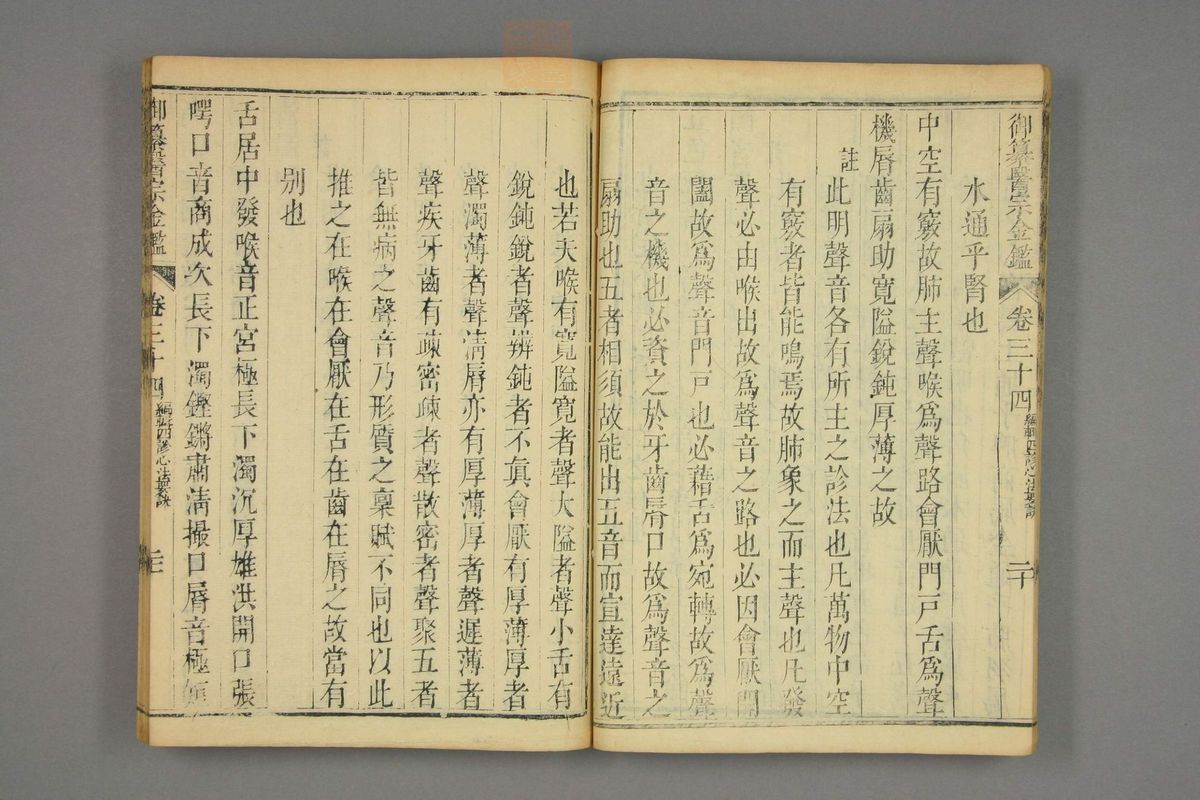 御纂醫宗金鑑 卷三十四 編輯四診心法要訣 二十
水通乎腎也
中空有竅故肺主聲喉爲聲路會厭門戸舌爲聲
機脣齒扇助寬隘銳鈍厚薄之故
註此明聲音各有所主之診法也凡萬物中空
有竅者皆能鳴焉故肺象之而主聲也凡發
聲必由喉出故爲聲音之路也必因會厭開
闔故爲聲音門戸也必藉舌爲宛轉故爲聲
音之機也必資之於牙齒脣口故爲聲音之
扇助也五者相須故能出五音而宣達遠近
也若夫喉有寬隘寬者聲大隘者聲小舌有
銳鈍銳者聲辨鈍者不眞會厭有厚薄厚者
聲濁薄者聲清脣亦有厚薄厚者聲遲薄者
聲疾牙齒有疎密疎者聲散密者聲聚五者
皆無病之聲音乃形質之稟賦不同也以此
推之在喉在會厭在舌在齒在脣之故當有
别也
舌居中發喉音正宮極長下濁沉厚雄洪開口張
𠹌口音商成次長下濁鏗鏘肅清撮口脣音極短
御纂醫宗金鑑 卷三十四 編輯四診心法要訣